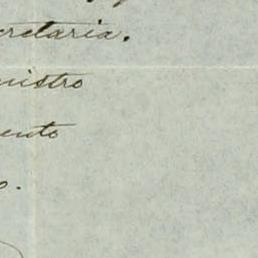 cretaria.
nistro
ento
o.